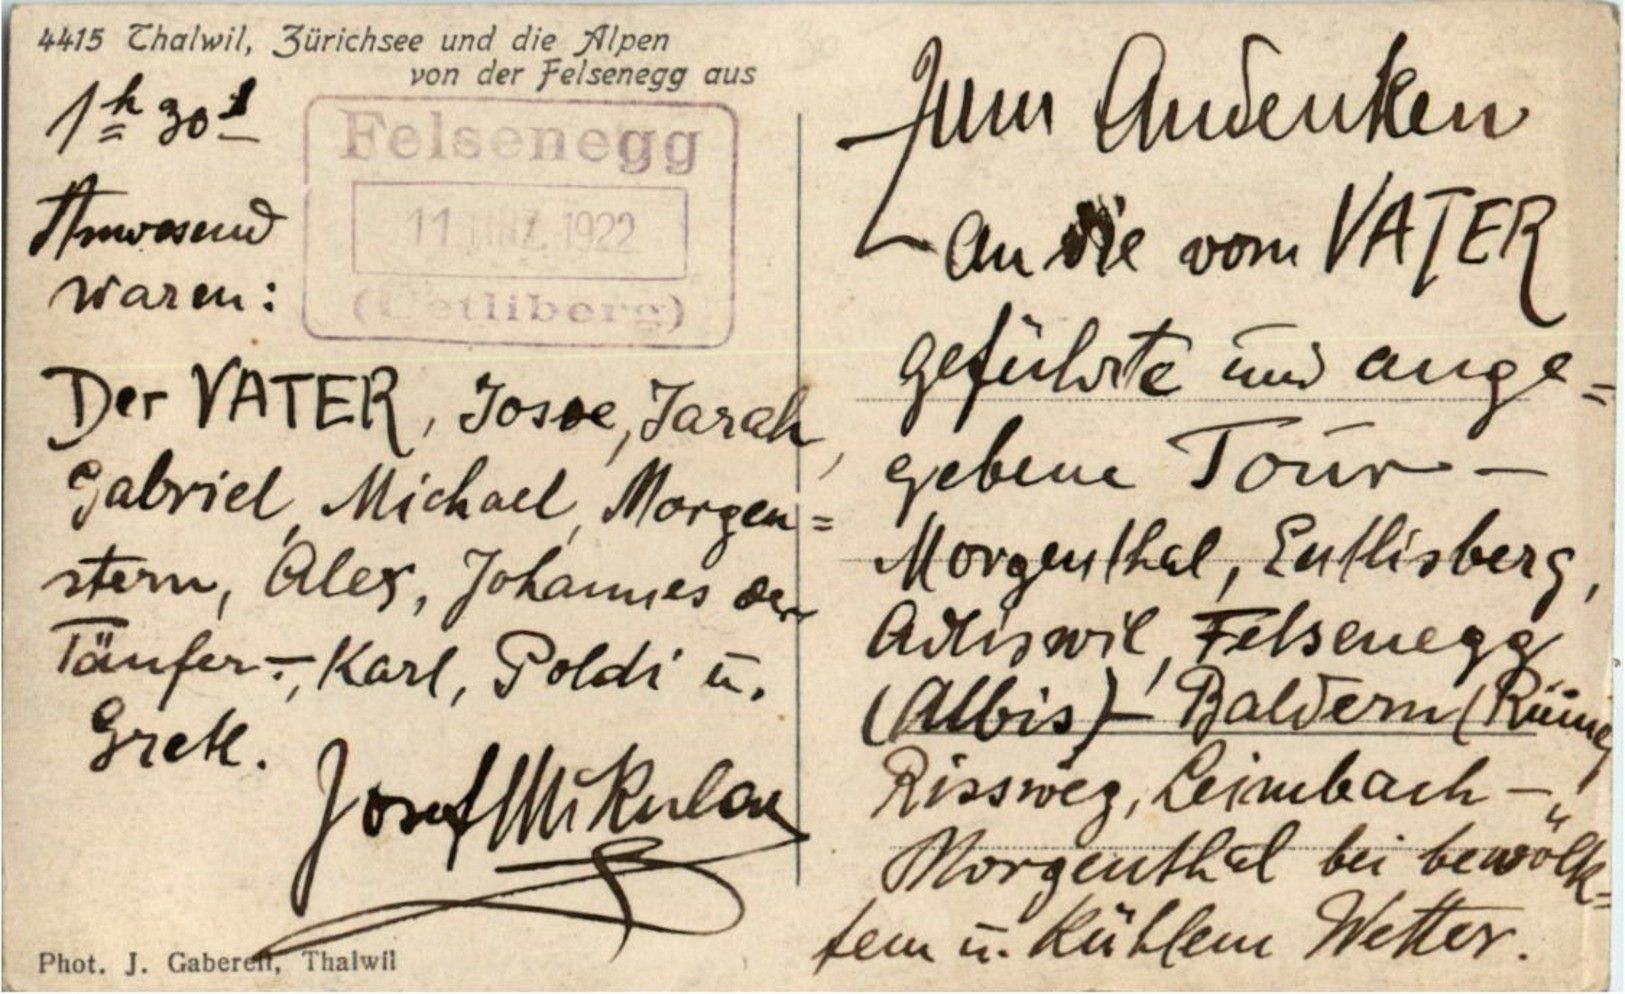 4415 Thalwil, Zürichsee und die Alpen
von der Felsenegg aus
1h 30
Felsenegg
11 MRZ. 1922
(Uetliberg)
Anwesend
waren:
Der VATER, Josoe, Sarah,
Gabriel, Michael, Morgen=
stern, Alex, Johannes der
Täufer-, Karl, Poldi u.
Gretl.
Josef Mikulau
Phot. J. Gaberell, Thalwil
Zum Andenken
an die vom VATER
geführte und ange=
gebene Tour –
Morgenthal, Entlisberg,
Adliswil, Felsenegg
(Albis) – Baldern (Ruine)
Rissweg, Leimbach –
Morgenthal bei bewölk=
tem u. kühlem Wetter.